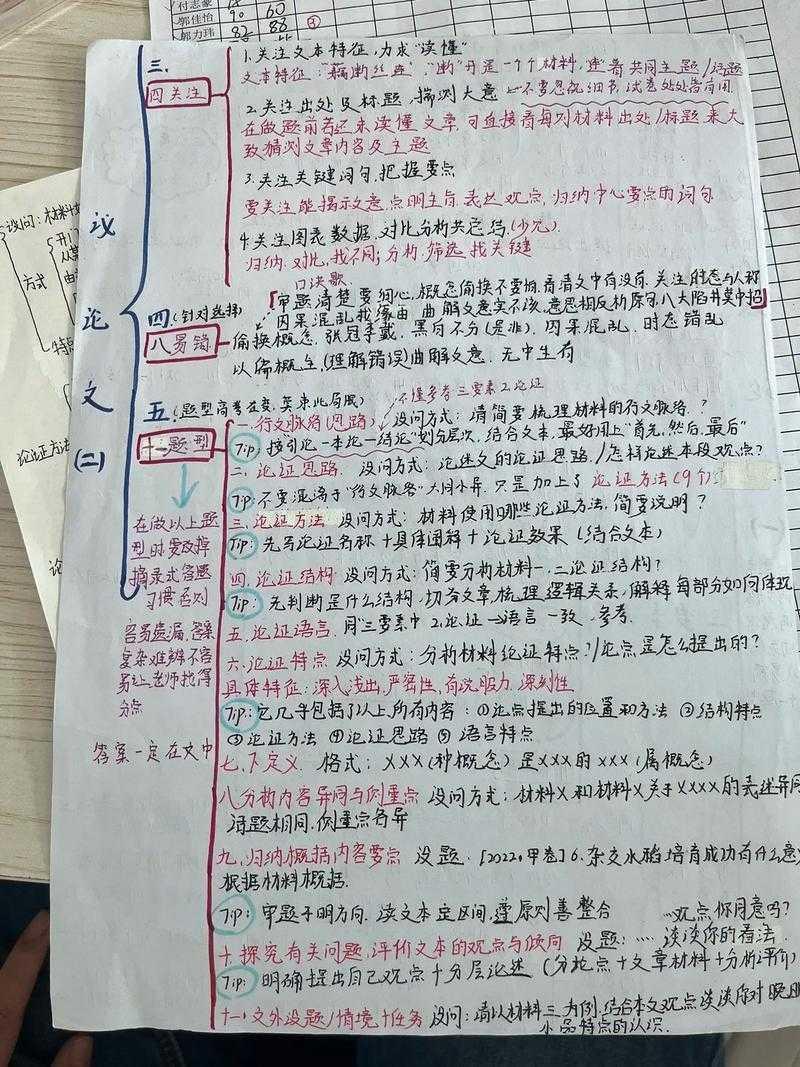 付志豪
郭佳怡 90 60
郭力玮 82 88
设问：材料
方式
特点
论证方法
议论文(二)
三.
四关注
1.关注文本特征，力求"读懂"
文本特征："藕断丝连"."断"开是一个个材料，连着共同主题/话题
2.关注出处及标题，揣测大意 不要忽视细节，试卷处处皆有用
在做题前若还未读懂文章，可直接看每则材料出处/标题来大
致猜测文章内容及主题
3.关注关键词句，把握要点
要关注能揭示文意，点明主旨，表达观点，归纳中心要点的词句
4.关注图表数据，对比分析共总结.(少见)
归纳，对比，找不同；分析，筛选，找关键
口决歌
四.(针对选择)
八易错
「审题清楚要细心，概念偷换不要怕，看清文中有没有，关注时态与人称
因果混乱找缘由，曲解文意实不该，意思相反析原句，八大陷井莫中招」
偷换概念，张冠李戴，黑白不分(是非)，因果混乱，时态错乱
以偏概全，(理解错误)曲解文意，无中生有
五.(题型高考在变，莫束此局限)
十一题型
不懂参考三要素2.论证
一.行文脉络(思路) 设问方式：请简要梳理材料的行文脉络.？
Tip：按引论—本论—结论"划分层次，结合文本，最好用上"首先，然后，最后"
二.论证思路 设问方式：论述文的论证思路/怎样论述本段观点？
Tip：不要混淆于"行文脉络"大同小异，只是加上了论证方法(9个)
三.论证方法 设问方式：材料使用哪些论证方法，简要说明？
Tip：先写论证名称+具体阐释+论证效果(结合文本)
四.论证结构 设问方式：简要分析材料一、二论证结构？
Tip：先判断是什么结构，切分文章，梳理逻辑关系，解释每部分如何体现
五.论证语言 用"三要素中2.论证→语言一致，参考.
六.论证特点 设问方式：分析材料论证特点？/论点是怎么提出的？
具体特征：深入浅出，严密性，有说服力，深刻性
Tip：它几乎包括了以上所有内容：①论点提出的位置和方法 ②结构特点
③论证方法 ④论证思路 ⑤语言特点
七.下定义 格式：XXX(种概念)是XXX的XXX(属概念)
八分析内容异同与侧重点 设问方式：材料X和材料X关于XXXX的表述异同
话题相同，侧重点各异
九.归纳概括内容要点 设题：[2022.甲卷]6.杂交水稻培育成功有什么意
根据材料概括.
Tip：审题干明方向，读文本定区间，遵原则善整合
十.探究有关问题，评价文本的观点与倾向 设题：……观点你同意吗？
……谈谈你的看法.
Tip：明确提出自己观点+分层论述(分论点+文章材料+分析评价)
十一.文外设题/情境+任务 设问：请以材料三为例，结合本文观点谈谈你对晚明
小品特点的认识.
在做以上题
型时要改掉
摘录式答题
习惯否则
容易遗漏，答案
复杂难辨不容
易让老师找得
分点
答案一定在文中